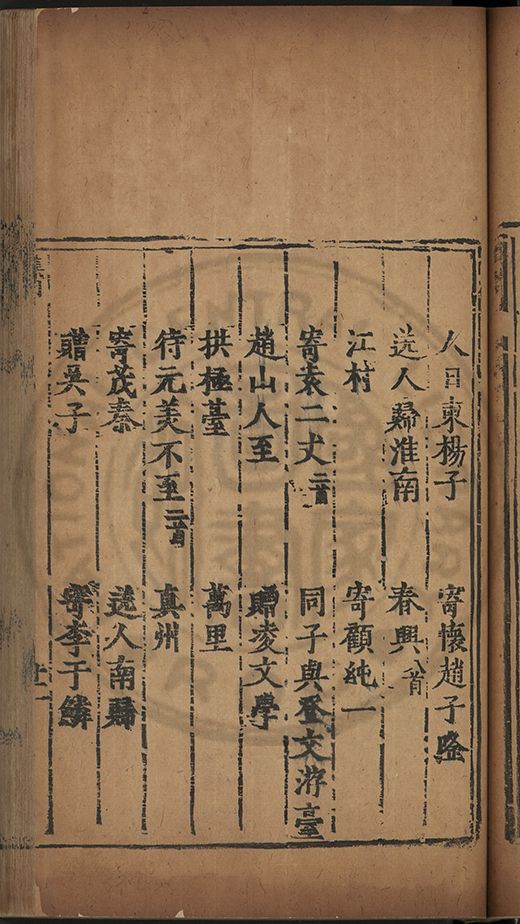 人日柬楊子 寄懷趙子隆
送人歸淮南 春興八首
江村 寄顧純一
寄袁二丈二首 同子與登文游臺
趙山人至 贈凌文學
拱極臺 萬里
待元美不至二首 真州
寄茂秦 送人南歸
贈吳子 寄李于鱗